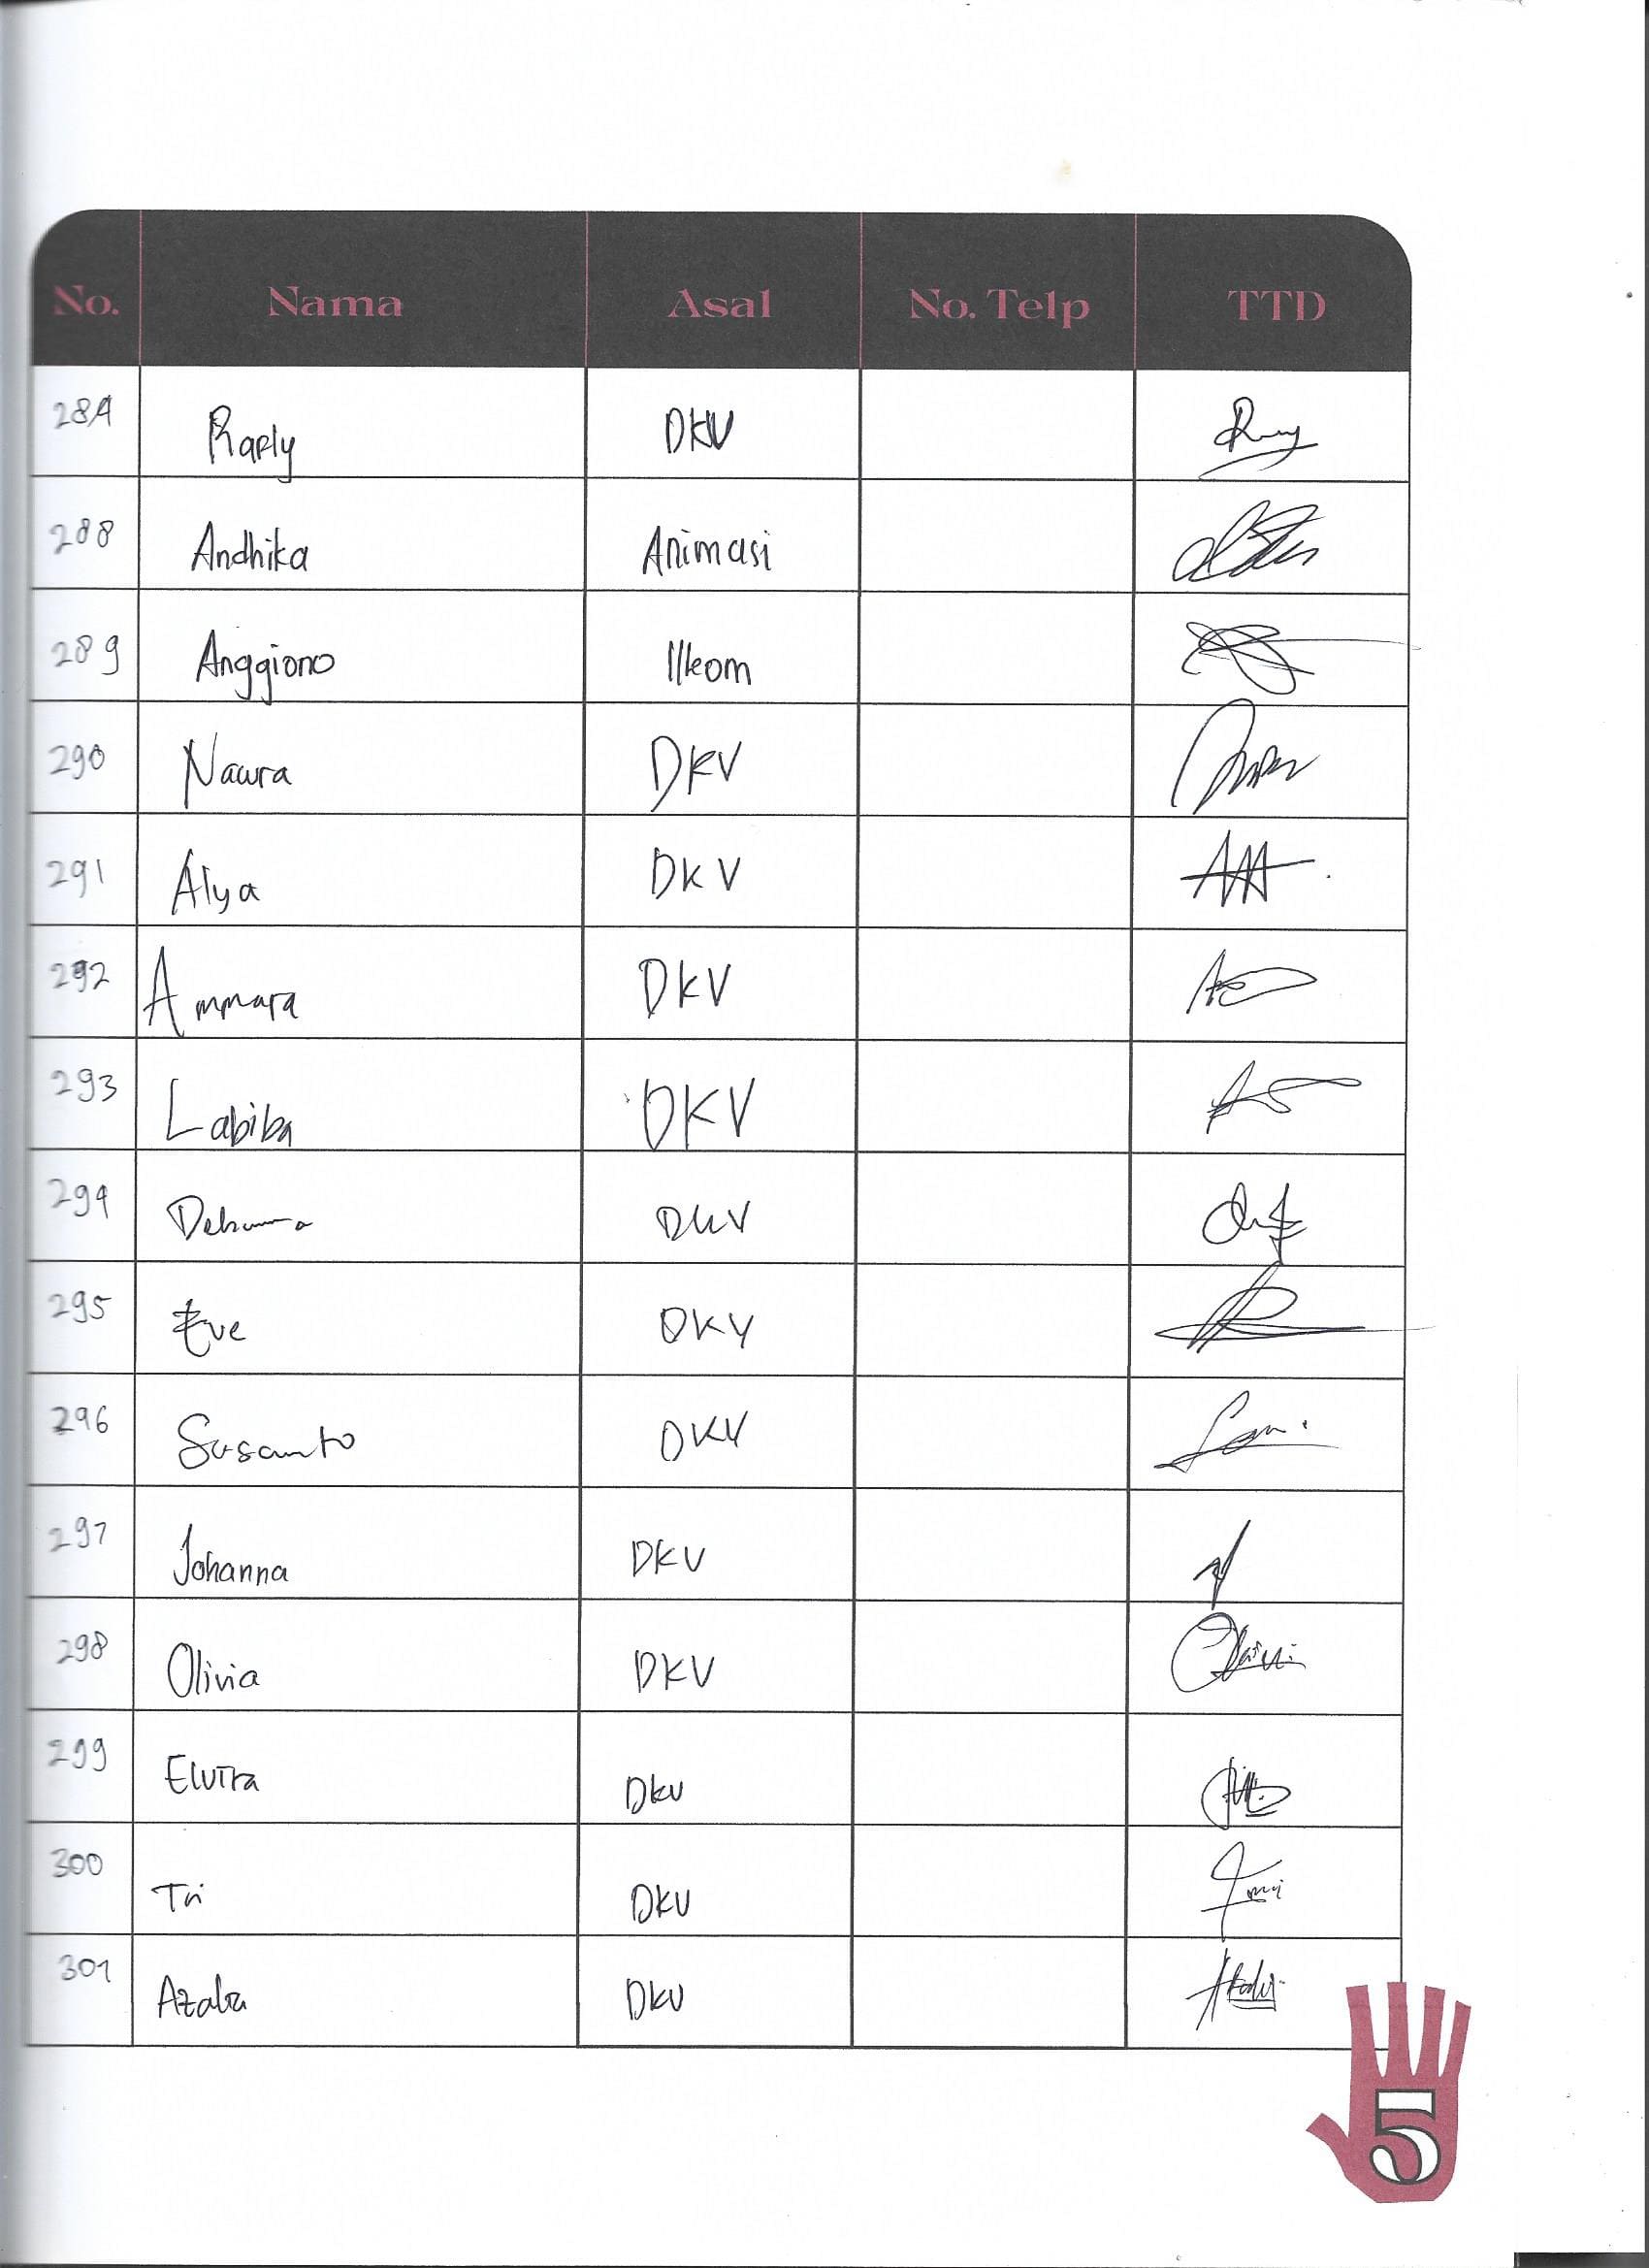 No. Nama Asal No. Telp TTD
284 Rafly DKV
288 Andhika Animasi
289 Anggiono Ilkom
290 Nawra DKV
291 Alya DKV
292 Ammara DKV
293 Labiba DKV
294 DKV
295 Eve DKV
296 Susanto DKV
297 Johanna DKV
298 Olivia DKV
299 Elvira DKV
300 Tri DKV
301 DKV
5